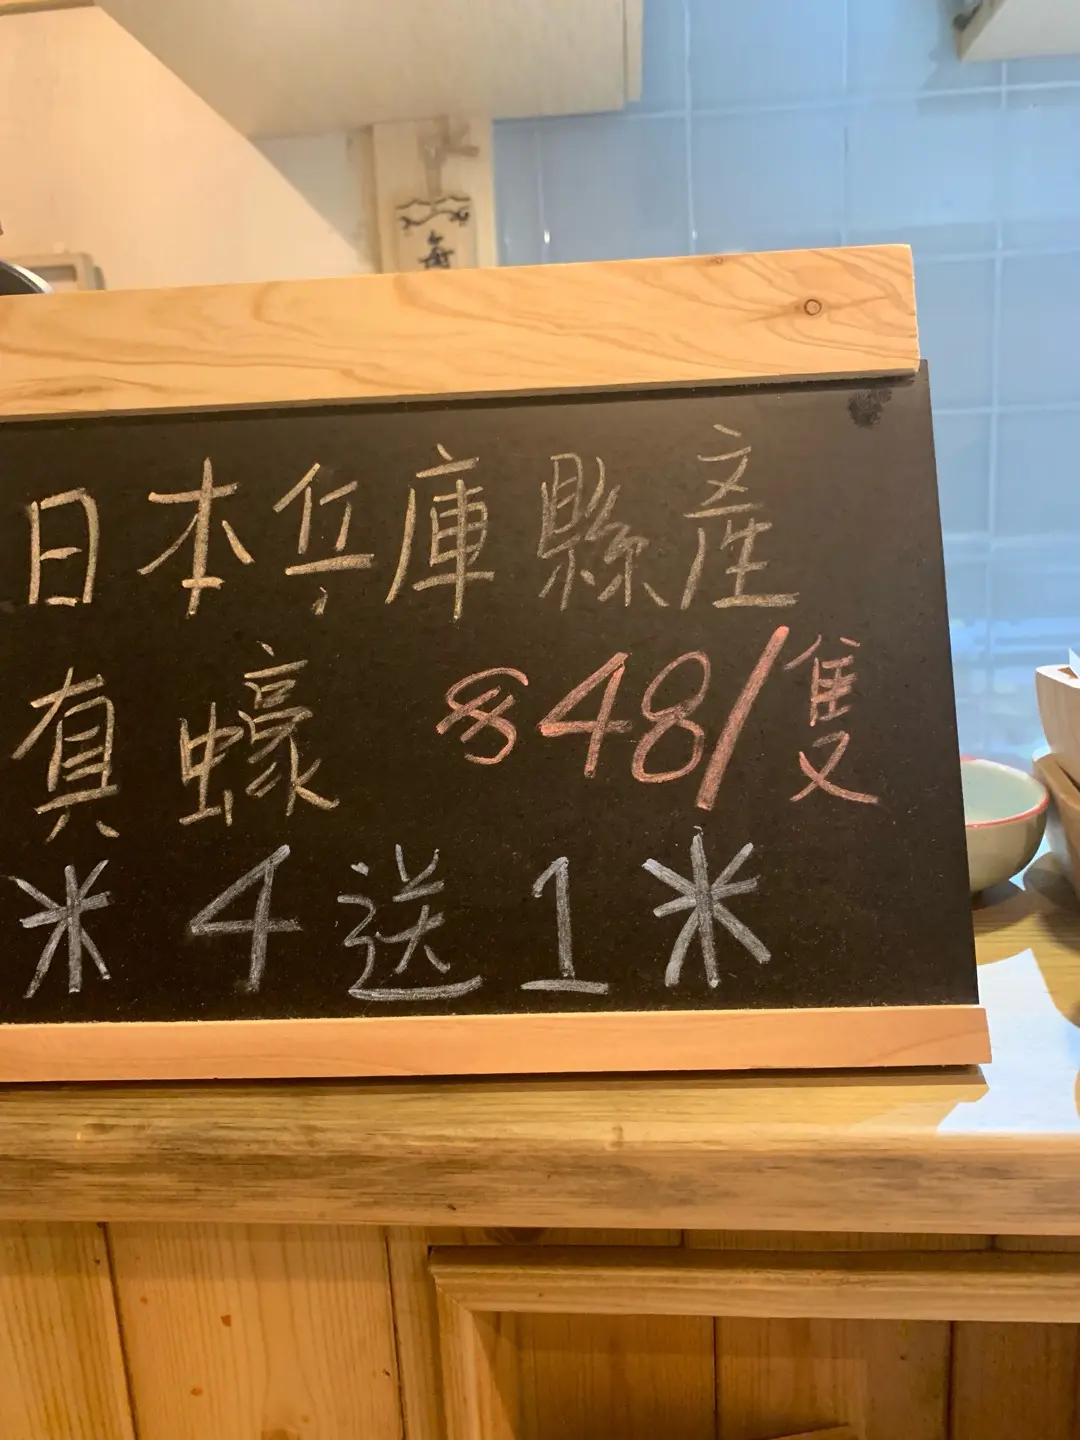 每
日本兵庫縣產
真蠔 $48/隻
* 4送1 *